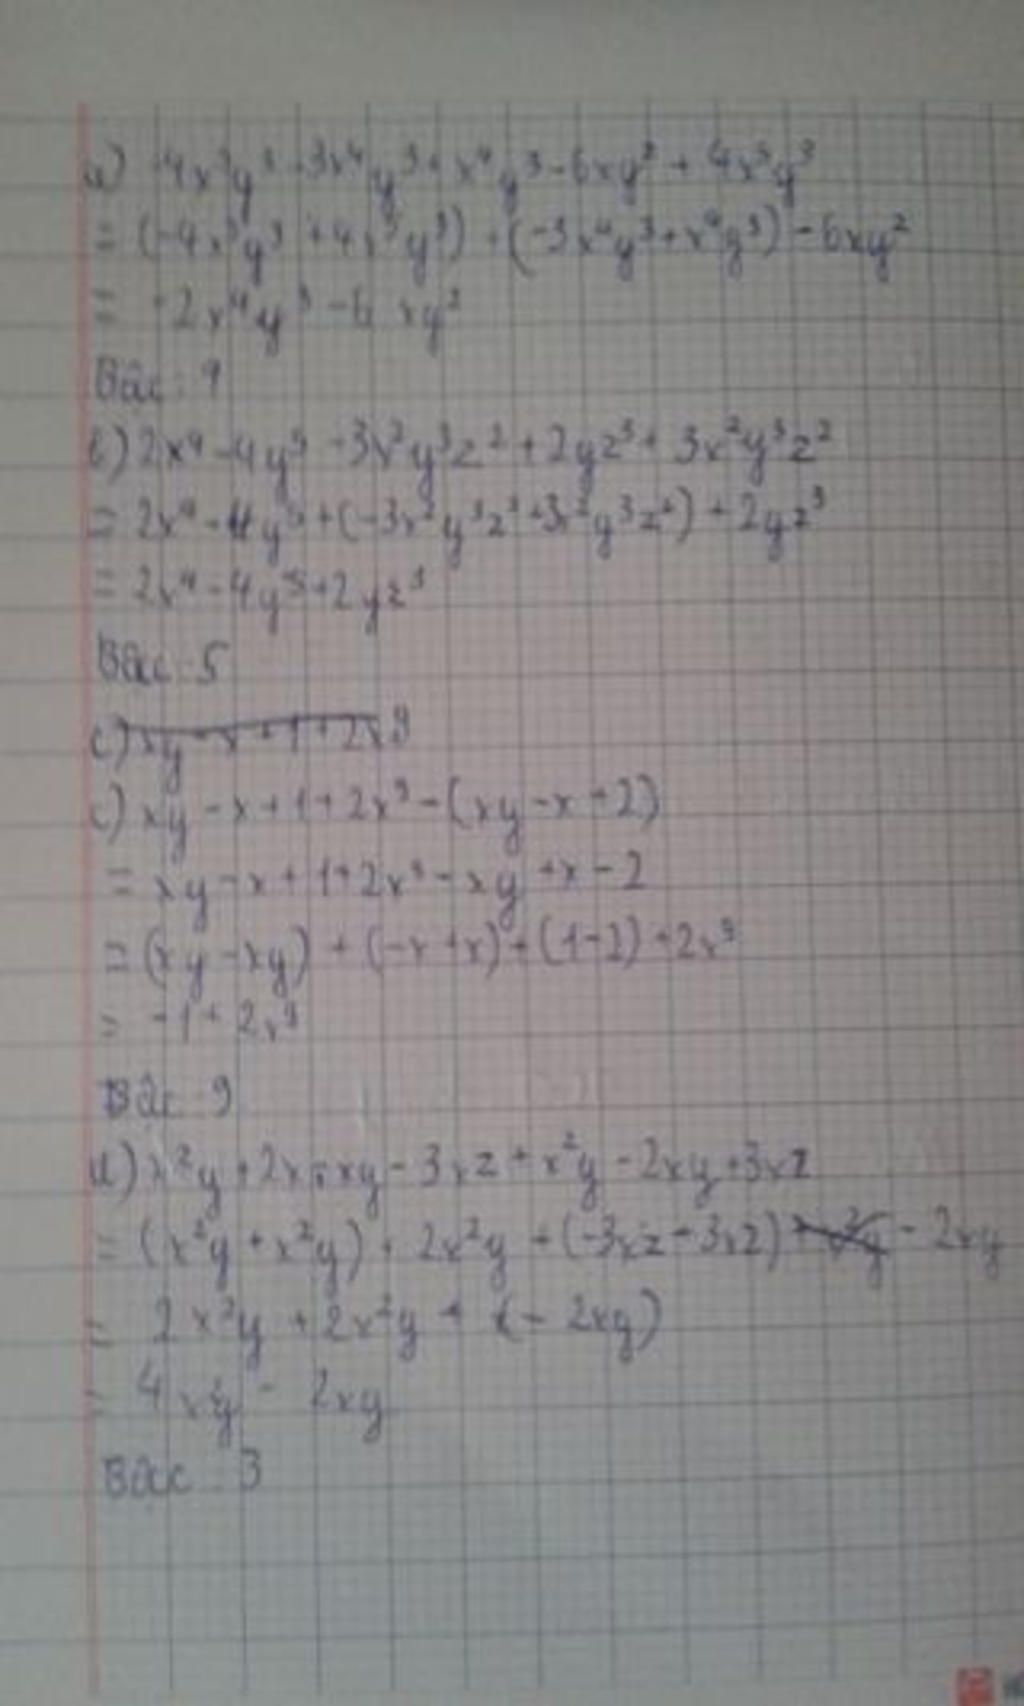 a) -4x³y³ - 3x⁴y³ + x⁴y³ - 6xy² + 4x³y³
= (-4x³y³ + 4x³y³) + (-3x⁴y³ + x⁴y³) - 6xy²
= -2x⁴y³ - 6xy²
Bậc: 7
b) 2x⁴ - 4y⁵ - 3x²y³z² + 2yz³ + 3x²y³z²
= 2x⁴ - 4y⁵ + (-3x²y³z² + 3x²y³z²) + 2yz³
= 2x⁴ - 4y⁵ + 2yz³
Bậc: 5
c) xy - x + 1 + 2x⁹
c) xy - x + 1 + 2x⁹ - (xy - x + 2)
= xy - x + 1 + 2x⁹ - xy + x - 2
= (xy - xy) + (-x + x) + (1 - 2) + 2x⁹
= -1 + 2x⁹
Bậc: 9
d) x²y + 2x.xy - 3xz + x²y - 2xy + 3xz
= (x²y + x²y) + 2x²y + (-3xz + 3xz) - 2xy
= 2x²y + 2x²y + (-2xy)
= 4x²y - 2xy
Bậc: 3